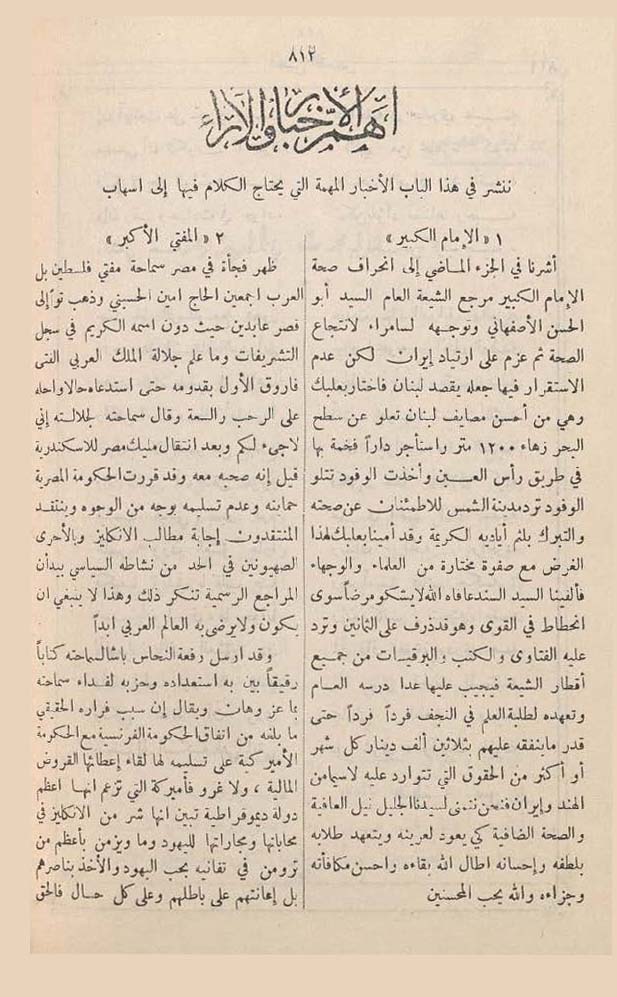 ٨١٢
أهم الأخبار والآراء
ننشر في هذا الباب الأخبار المهمة التي يحتاج الكلام فيها إلى اسهاب
١ « الإمام الكبير »
أشرنا في الجزء الماضي إلى انحراف صحة
الإمام الكبير مرجع الشيعة العام السيد أبو
الحسن الأصفهاني وتوجهه لسامراء لانتجاع
الصحة ثم عزم على ارتياد إيران لكن عدم
الاستقرار فيها جعله يقصد لبنان فاختار بعلبك
وهي من أحسن مصايف لبنان تعلو عن سطح
البحر زهاء ١٢٠٠ متر واستأجر داراً فخمة بها
في طريق رأس العين وأخذت الوفود تتلو
الوفود ترد مدينة الشمس للاطمئنان عن صحته
والتبرك بلثم أياديه الكريمة وقد أمينا بعلبك لهذا
الغرض مع صفوة مختارة من العلماء والوجهاء
فألفينا السيد السند عافاه الله لا يشكو مرضاً سوى
انحطاط في القوى وهو قد ذرف على الثمانين وترد
عليه الفتاوى والكتب والبرقيات من جميع
أقطار الشيعة فيجيب عليها عدا درسه العام
وتعهده لطلبة العلم في النجف فرداً فرداً حتى
قدر ما ينفقه عليهم بثلاثين ألف دينار كل شهر
أو أكثر من الحقوق التي تتوارد عليه لاسيما من
الهند وإيران فنحن نتمنى لسيدنا الجليل نيل العافية
والصحة الضافية كي يعود لعرينه ويتعهد طلابه
بلطفه وإحسانه اطال الله بقاءه واحسن مكافأته
وجزاءه والله يحب المحسنين
٢ « المفتي الأكبر »
ظهر فجأة في مصر سماحة مفتي فلسطين بل
العرب اجمعين الحاج امين الحسيني وذهب تواً إلى
قصر عابدين حيث دون اسمه الكريم في سجل
التشريفات وما علم جلالة الملك العربي الفتى
فاروق الأول بقدومه حتى استدعاه حالا واحله
على الرحب والسعة وقال سماحته لجلالته إني
لاجيء لكم وبعد انتقال مليك مصر للاسكندرية
قيل إنه صحبه معه وقد قررت الحكومة المصرية
حمايته وعدم تسليمه بوجه من الوجوه وينتقد
المنتقدون إجابة مطالب الانكليز وبالأحرى
الصهيونين في الحد من نشاطه السياسي بيد أن
المراجع الرسمية تنكر ذلك وهذا لا ينبغي ان
يكون ولا يرضى به العالم العربي ابداً
وقد ارسل رفعة النحاس باشا لسماحته كتاباً
رقيقاً بين به استعداده وحزبه لفداء سماحته
بما عز وهان ويقال إن سبب فراره الحقيقي
ما بلغه من اتفاق الحكومة الفرنسية مع الحكومة
الأميركية على تسليمه لها لقاء إعطائها القروض
المالية ، ولا غرو فأميركة التي تزعم انها اعظم
دولة ديموقراطية تبين انها شر من الانكليز في
محاباتها ومجاراتها لليهود وما ويزمن بأعظم من
ترومن في تفانيه بحب اليهود والأخذ بناصرهم
بل إعانتهم على باطلهم وعلى كل حال فالحق